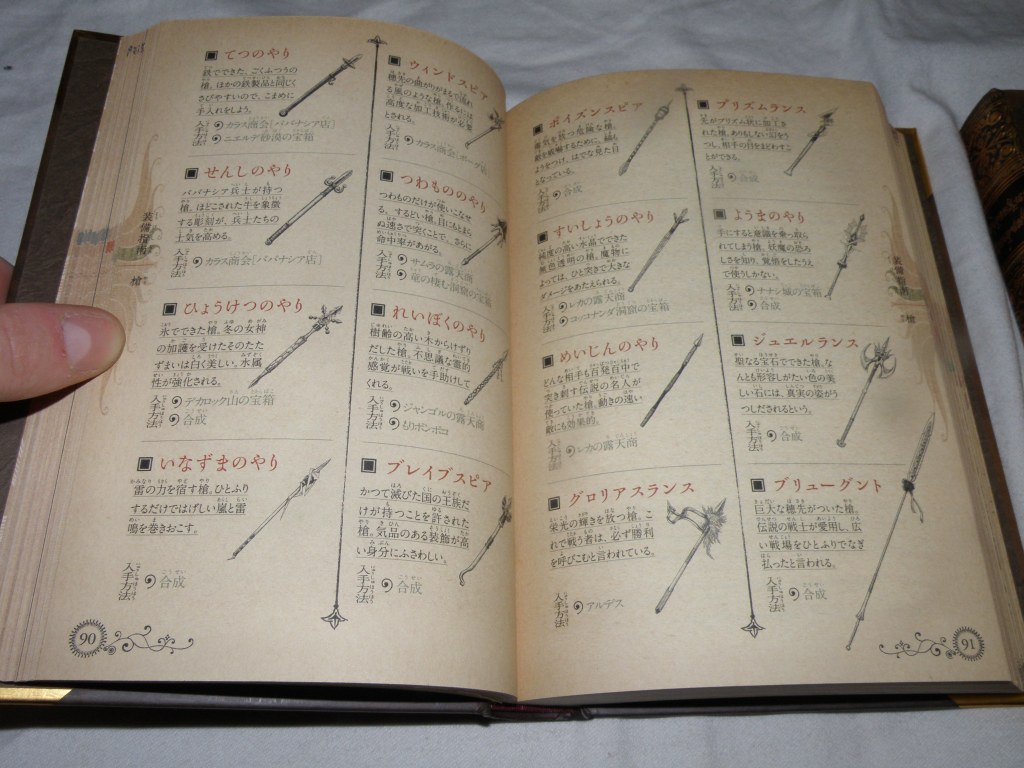 ■ てつのやり
鉄でできた、ごくふつうの
槍。ほかの鉄製品と同じく
さびやすいので、こまめに
手入れをしよう。
入手方法
カラス商会[ババナシア店]
ニエルデ砂漠の宝箱
■ せんしのやり
ババナシア兵士が持つ
槍。ほどこされた牛を象徴
する彫刻が、兵士たちの
士気を高める。
入手方法
カラス商会[ババナシア店]
■ ひょうけつのやり
氷でできた槍。冬の女神
の加護を受けたそのたた
ずまいは白く美しい。水属
性が強化される。
入手方法
デカロック山の宝箱
合成
■ いなずまのやり
雷の力を宿す槍。ひとふり
するだけではげしい嵐と雷
鳴を巻きおこす。
入手方法
合成
90
■ ウィンドスピア
穂先の曲がりがまるで流れ
る風のような槍。作るには
高度な加工技術が必要
とされる。
入手方法
カラス商会
■ つわもののやり
つわものだけが使いこなせ
る、するどい槍。目にもとまら
ぬ速さで突くことで、さらに
命中率があがる。
入手方法
サムラの露天商
竜の棲む洞窟の宝箱
■ れいぼくのやり
樹齢の高い木からけずり
だした槍。不思議な霊的
感覚が戦いを手助けして
くれる。
入手方法
ジャンゴルの露天商
もりポンポコ
■ ブレイブスピア
かつて滅びた国の王族だ
けが持つことを許された
槍。気品のある装飾が高
い身分にふさわしい。
入手方法
合成
装備指南
槍
■ ポイズンスピア
毒気を放つ危険な槍。
敵を威嚇するために、縞も
ようをつけ、はでな見た目
となっている。
入手方法
合成
■ すいしょうのやり
純度の高い水晶でできた
無色透明の槍。魔物に
よっては、ひと突きで大きな
ダメージをあたえられる。
入手方法
レカの露天商
コッコナンダ洞窟の宝箱
■ めいじんのやり
どんな相手も百発百中で
突き刺す伝説の名人が
使っていた槍。動きの速い
敵にも効果的。
入手方法
レカの露天商
■ グロリアスランス
栄光の輝きを放つ槍。こ
れで戦う者は、必ず勝利
を呼びこむと言われている。
入手方法
アルデス
■ プリズムランス
光がプリズム状に加工さ
れた槍。ありもしない幻をう
つし、相手の目をまどわすこ
とができる。
入手方法
合成
■ ようまのやり
手にすると意識を乗っ取ら
れてしまう槍。妖魔の恐ろ
しさを知り、覚悟をしたうえ
で使うしかない。
入手方法
ナナシ城の宝箱
合成
■ ジュエルランス
聖なる宝石でできた槍。な
んとも形容しがたい色の美
しい石には、真実の姿がう
つしだされるという。
入手方法
合成
■ ブリューグント
巨大な穂先がついた槍。
伝説の戦士が愛用し、広
い戦場をひとふりでなぎ
払ったと言われる。
入手方法
合成
装備指南
槍
91